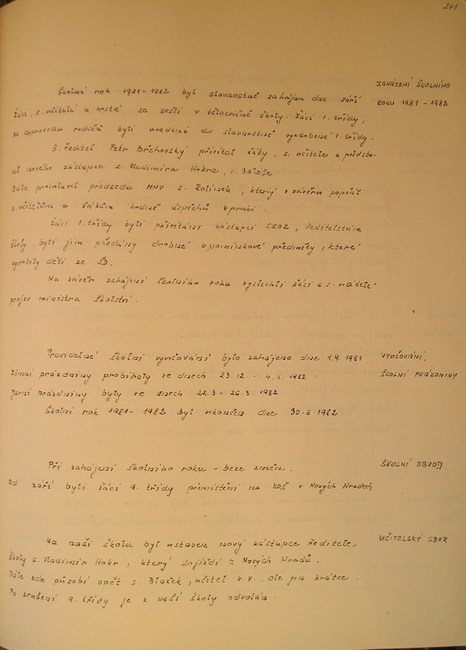 241
ZAHÁJENÍ ŠKOLNÍHO
ROKU 1981-1982
Školní rok 1981-1982 byl slavnostně zahájen dne září
žáci, s. učitelé a hosté se sešli v tělocvičně školy. Žáci 1. třídy,
za doprovodu rodičů byli uvedeni do slavnostně vyzdobené 1. třídy.
S. ředitel Petr Břchovský přivítal žáky, s. učitele a představil
nového zástupce s. Vladimíra Hokra, s.
Dále promluvil předseda MNV s. který v závěru popřál
s. učitelům a žákům hodně úspěchů v práci.
Žáci 1. třídy byli přivítáni zástupci SRPŠ, ředitelstvím
školy, byli jim předány drobné upomínkové předměty, které
vyrobily děti ze ŠD.
Na závěr zahájení školního roku vyslechli žáci a s. učitelé
projev ministra školství.
VYUČOVÁNÍ,
ŠKOLNÍ PRÁZDNINY
Pravidelné školní vyučování bylo zahájeno dne 1.9.1981
zimní prázdniny probíhaly ve dnech 23.12. - 4.1.1982
jarní prázdniny byly ve dnech 22.3 - 26.3.1982
Školní rok 1981-1982 byl ukončen dne 30.6.1982
ŠKOLNÍ OBVOD
Při zahájení školního roku - beze změn.
Od září byli žáci 9. třídy přemístěni na ZDŠ v Nových Hradech
UČITELSKÝ SBOR
Na naši školu byl ustaven nový zástupce ředitele
školy s. Vladimír Hokr, který dojíždí z Nových Hradů.
Dále zde působí opět s. učitel v.v. ale jen krátce.
Po zrušení 9. třídy je z naší školy odvolán.